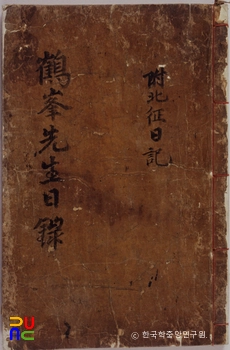 附北征日記
鶴峯先生日錄
© 한국학중앙연구원